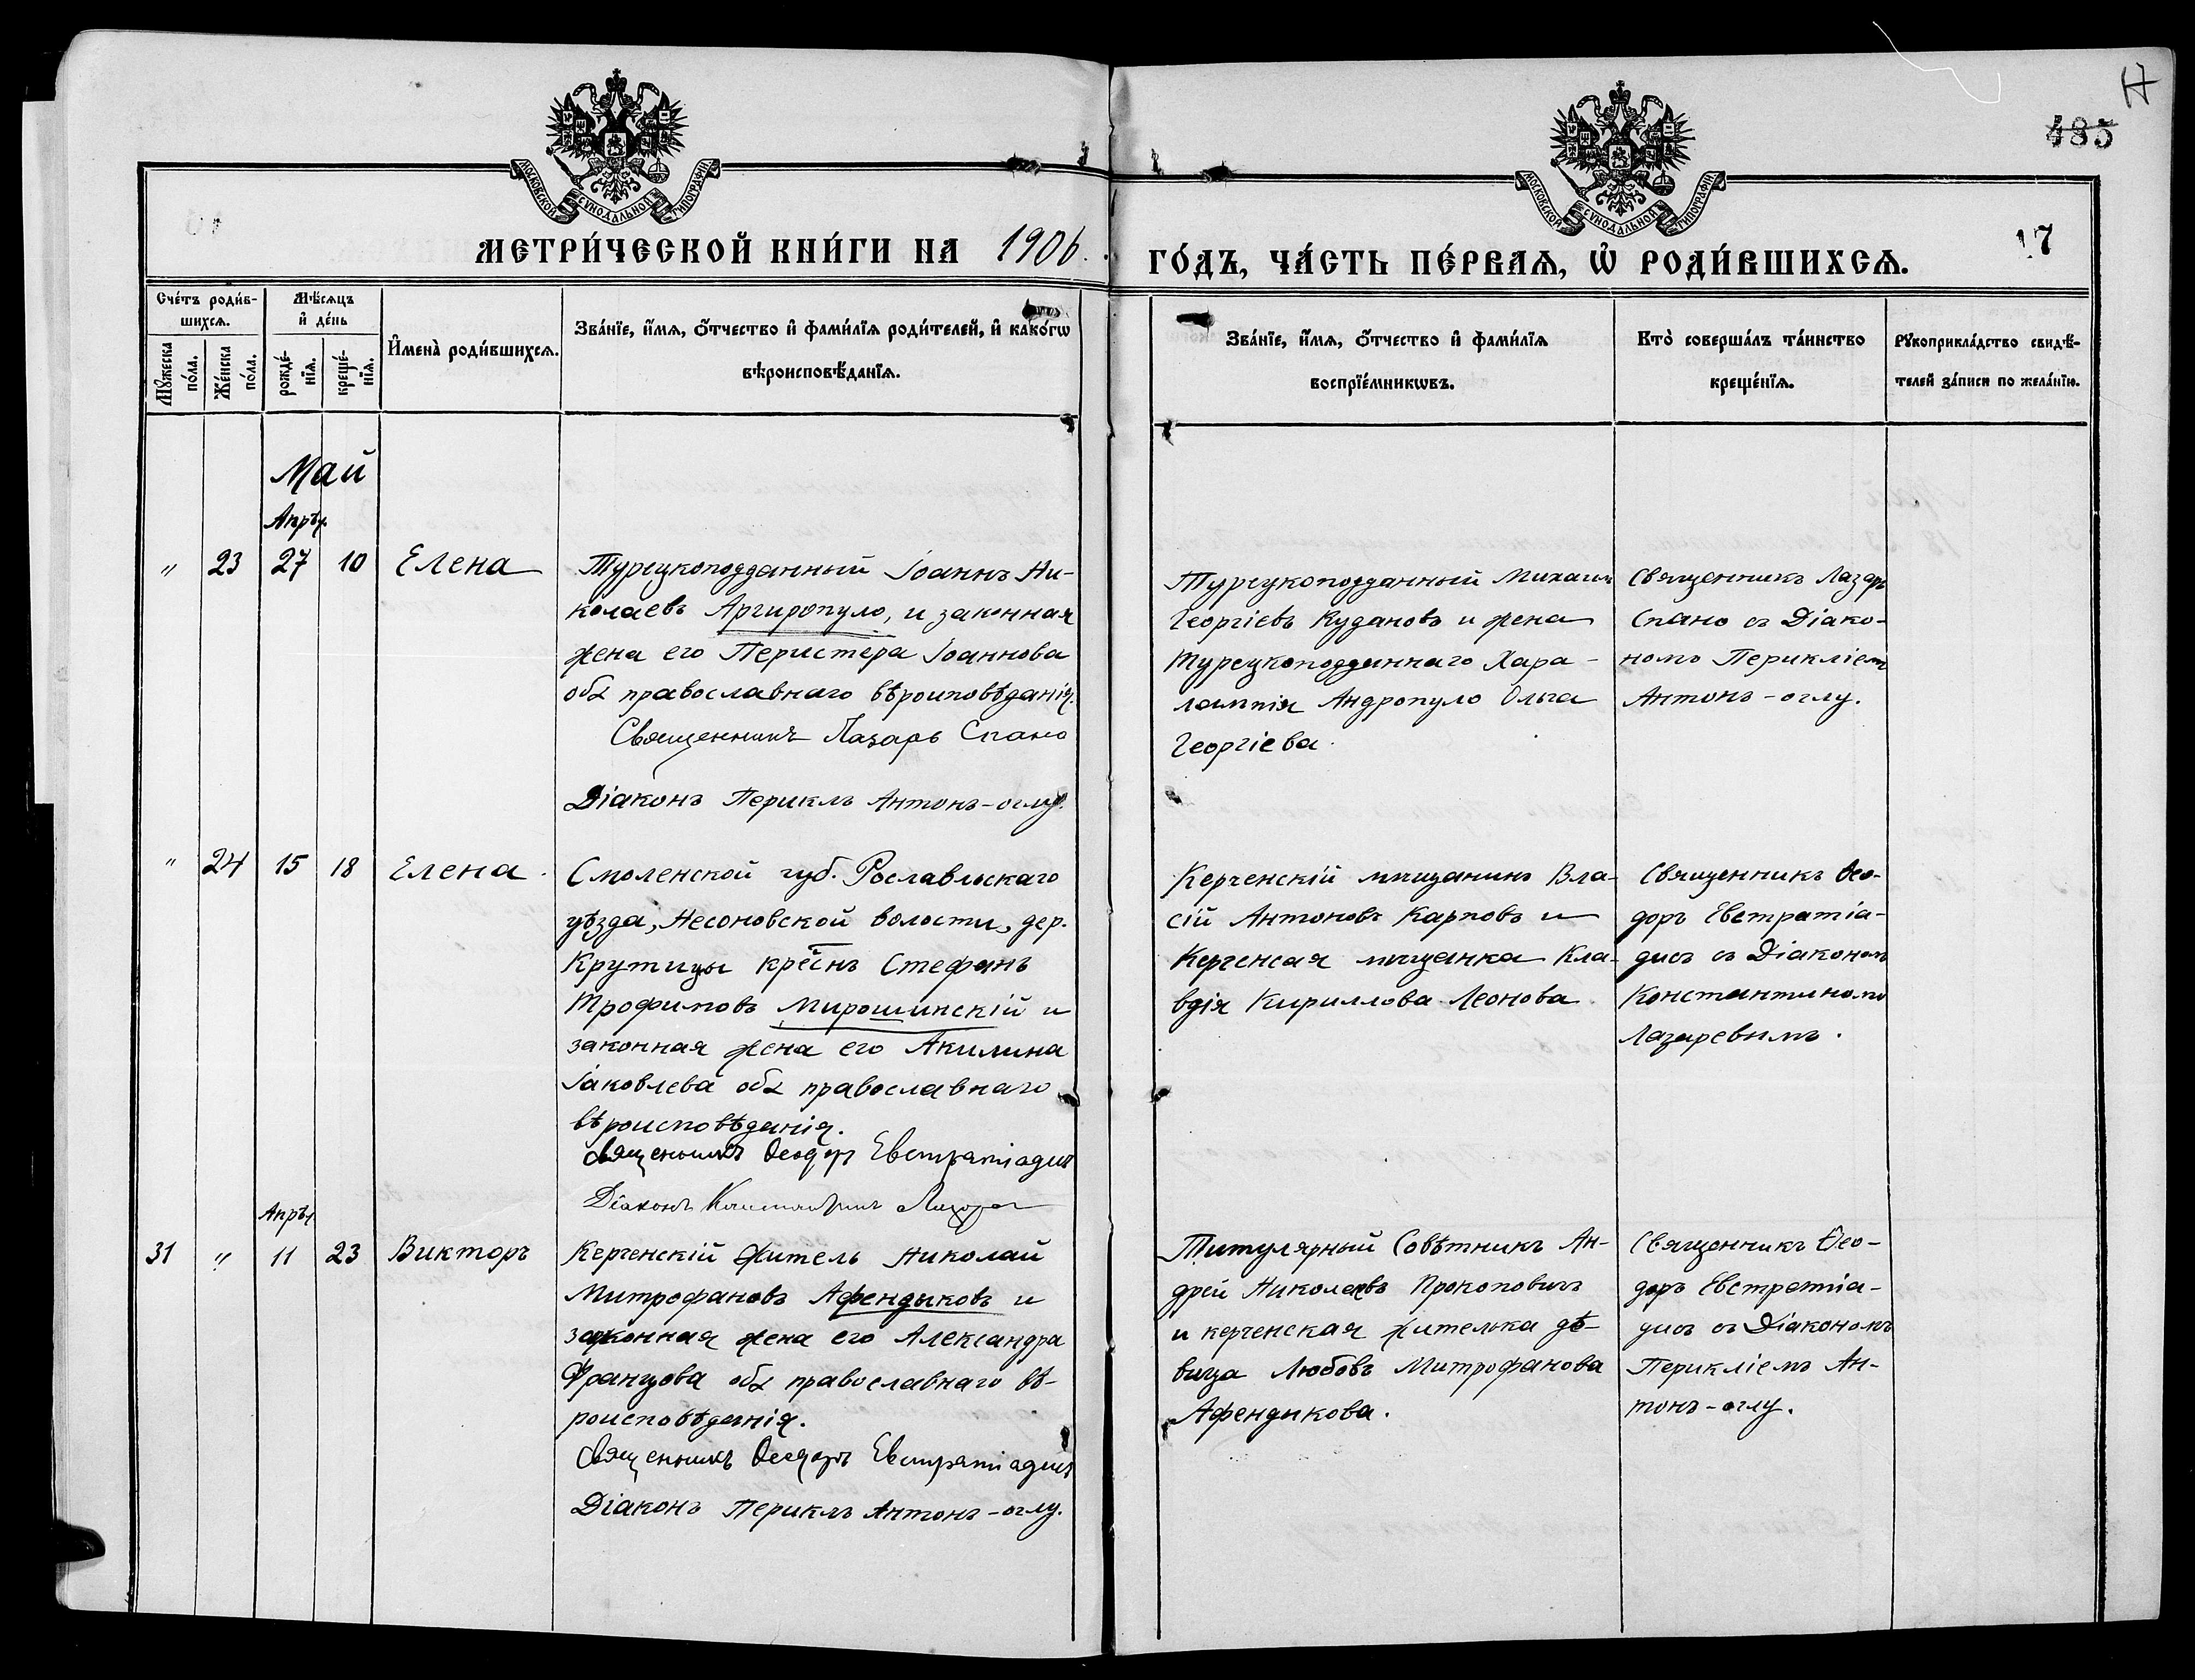 485
17
МОСКОВСКОЙ СѴНОДАЛЬНОЙ ТИПОГРАФІИ
МОСКОВСКОЙ СѴНОДАЛЬНОЙ ТИПОГРАФІИ
МЕТРИ́ЧЕСКОЙ КНИ́ГИ НА 1906.
ГО́ДЪ, ЧА́СТЬ ПЕ́РВАѦ, Ѡ҆ РОДИ́ВШИХСѦ.
Сче́тъ роди́в-
шихсѧ.
Мꙋ́жеска по́ла.
Же́нска по́ла.
Мѣ́сѧцъ
и҆ де́нь
рожде́-
нїѧ.
креще́-
нїѧ.
И҆мена̀ роди́вшихсѧ.
Зва́нїе, и҆́мѧ, ѻ҆́тчество и҆ фами́лїѧ роди́телей, и҆ како́гѡ
вѣроисповѣ́данїѧ.
Зва́нїе, и҆́мѧ, ѻ҆́тчество и҆ фами́лїѧ
воспрїе́мникѡвъ.
Кто̀ соверша́лъ та́инство
креще́нїѧ.
Рꙋкоприкла́дство свидѣ́-
телей за́писи по жела́нїю.
Май
Апрѣл.
" 23 27 10 Елена
Турецкоподданный Іоаннъ Ни-
колаевъ Аргиропуло, и законная
жена его Перистера Іоаннова
оба православнаго вѣроиповѣданія.
Священникъ Лазарь Спано
Діаконъ Периклъ Антонъ-оглу.
Турецкоподданный Михаил
Георгіевъ Кудановъ и жена
турецкоподданнаго Хара-
лампія Андропуло Ольга
Георгіева.
Священникъ Лазарь
Спано съ Діако-
номъ Перикліемъ
Антонъ-оглу.
" 24 15 18 Елена.
Смоленской губ. Рославльскаго
уѣзда, Несоновской волости, дер.
Крутицы кресн҃ъ Стефанъ
Трофимовъ Мирошинскій и
законная жена его Акилина
Іаковлева оба православнаго
вѣроисповѣданія.
Священникъ Ѳеодоръ Евстратіадисъ
Діаконъ Константинъ Лазарев
Керченскій мѣщанинъ Вла-
сій Антоновъ Карповъ и
Керченсая мѣщанка Кла-
вдія Кириллова Леонова.
Священникъ Ѳео-
доръ Евстратіа-
дисъ съ Діаконом
Константиномъ
Лазаревымъ.
Апрѣл
31 " 11 23 Викторъ
Керченскій житель Николай
Митрофановъ Афендыковъ и
законная жена его Александра
Францова оба православнаго вѣ-
роисповѣданія.
Священникъ Ѳеодоръ Евстратіадисъ
Діаконъ Периклъ Антонъ-оглу.
Титулярный Совѣтникъ Ан-
дрей Николаевъ Прокоповичъ
и керченская жителька дѣ-
вица Любовь Митрофанова
Афендикова.
Священникъ Ѳео-
доръ Евстратіа-
дисъ съ Діакономъ
Перикліемъ Ан-
тонъ-оглу.